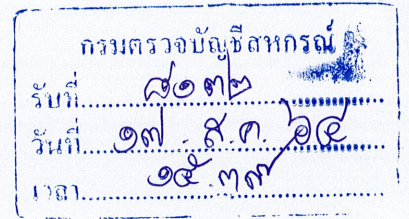 กรมตรวจบัญชีสหกรณ์
รับที่ ๘๑๓๒
วันที่ ๑๗ ส.ค. ๖๔
เวลา ๑๕.๓๙